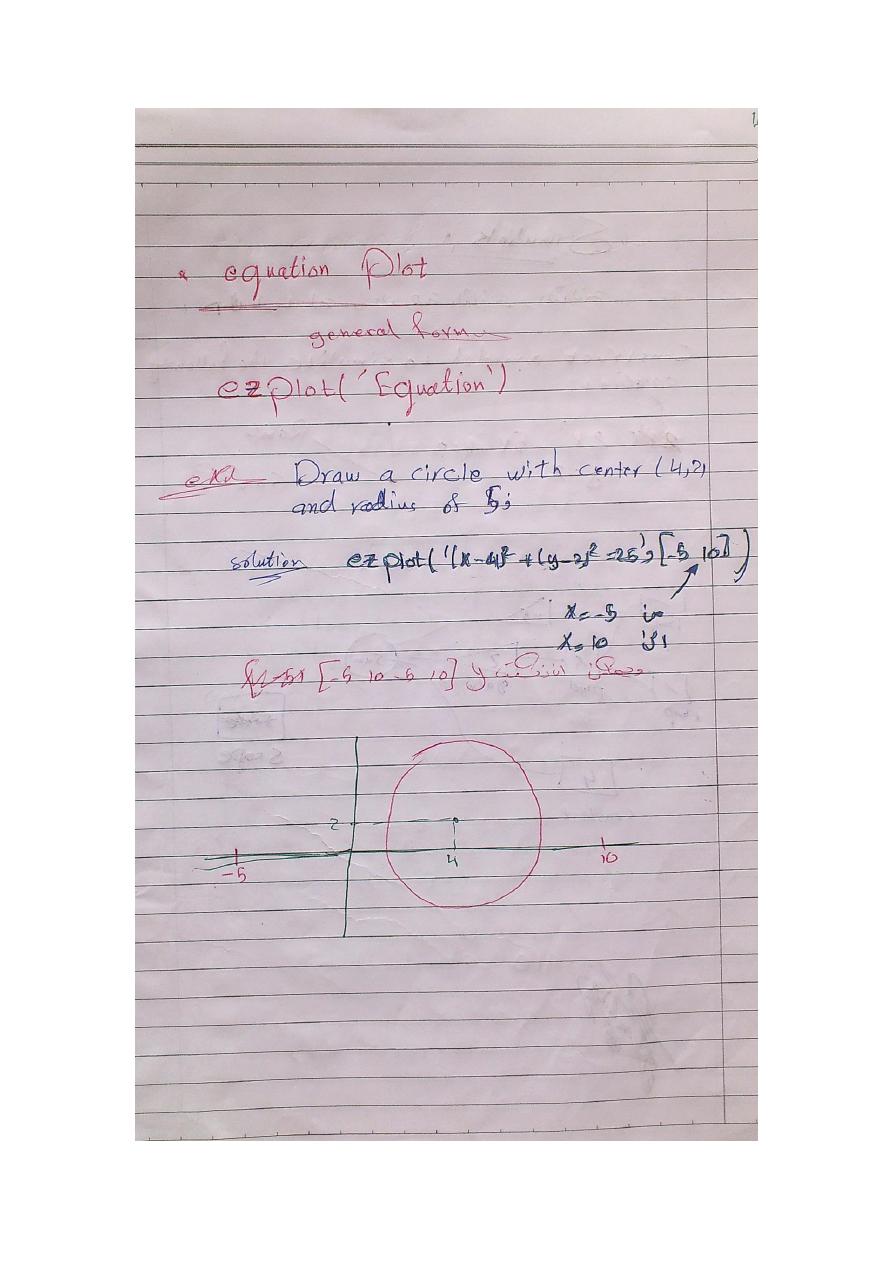 * equation Plot
general form
ezplot('Equation')
exa Draw a circle with center (4,2)
and radius of 5;
solution ezplot('(x-4)² + (y-2)² =25', [-5 10])
x=-5 من
x=10 الى
[-5 10 -5 10] y
2
-5 4 10